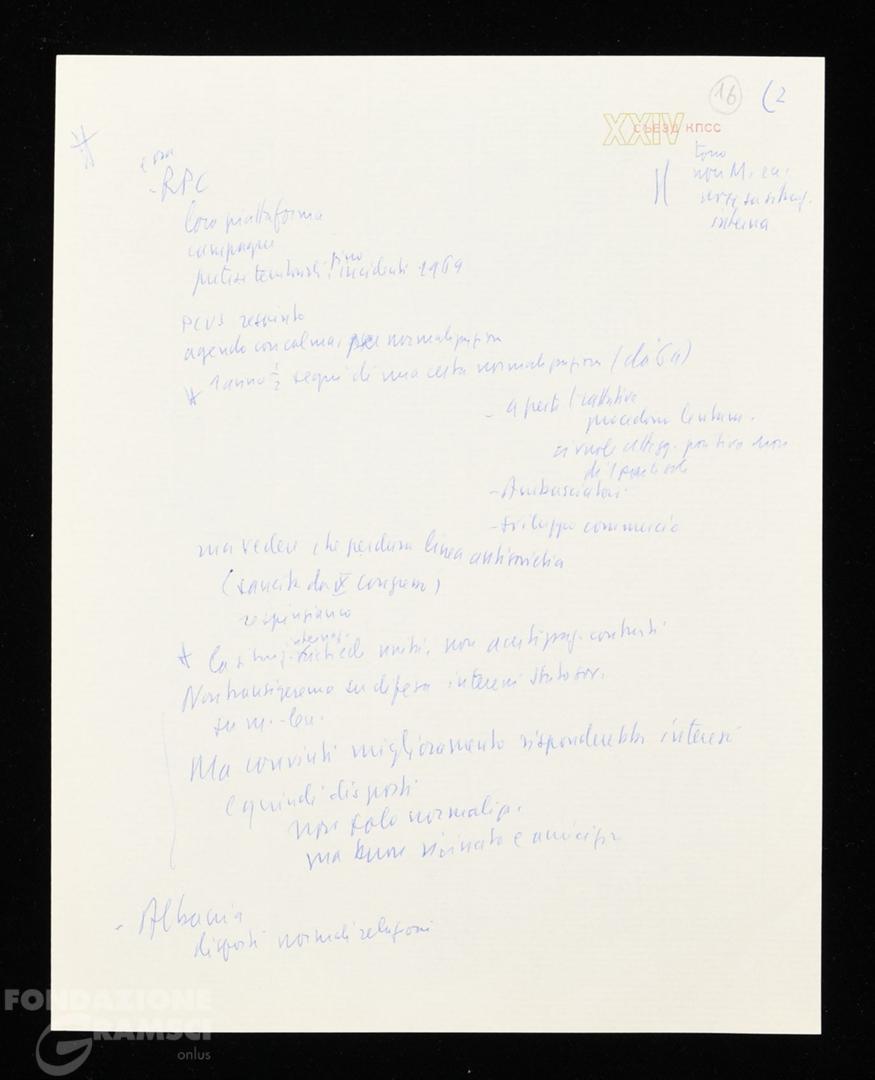 16 (2
XXIV
СЪЕЗД КПСС
tono
non M.
interna
e ora
- RPC
loro piattaforma
campagne
pretese territoriali, fino incidenti 1969
PCUS respinto
agendo con calma, per normalizzazione
1 anno ½ segni di una certa normalizzazione (da
- aperte trattative
procedono lentam.
ci vuole attegg. positivo non
di 1 parte sola
- Ambasciatori
- sviluppo commercio
ma vedere che perdura linea antisovietica
(sancita da IX Congresso)
respingiamo
la situaz. internaz. richiede unità, non contrasti
Non transigeremo su difesa interessi Stato sov.
su m.-len.
Ma convinti miglioramento risponderebbe interessi
e quindi disposti
non solo normalizz.
ma buon vicinato e amicizia
- Albania
disposti normali relazioni
FONDAZIONE
GRAMSCI
onlus